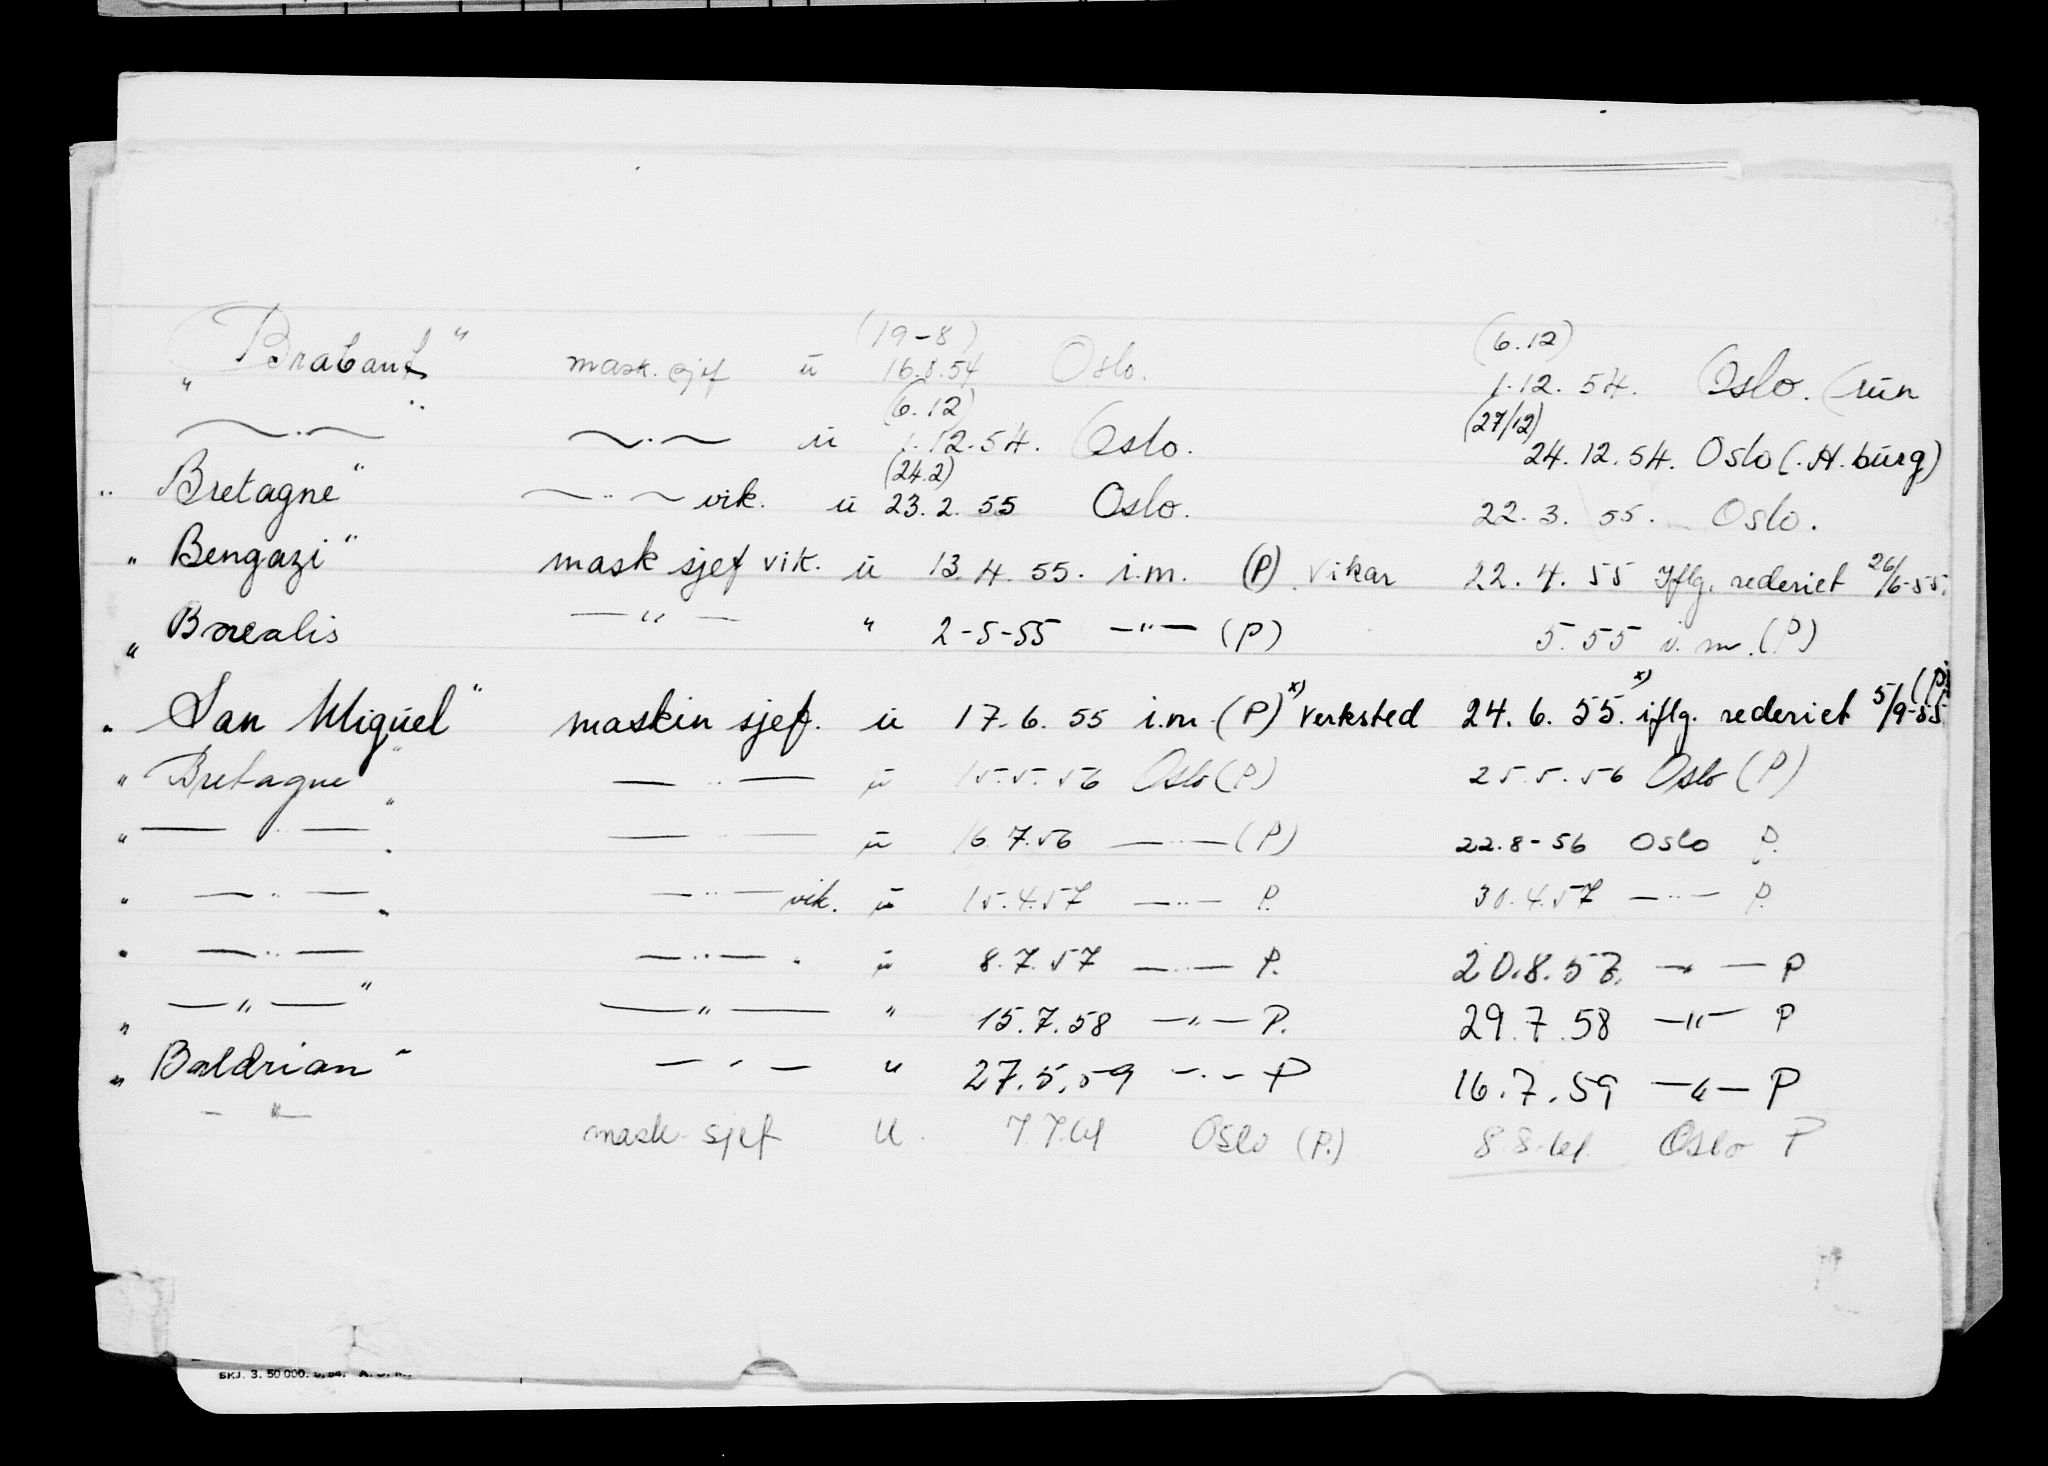 (19-8) (6.12)
„ Brabant" mask. sjef u 16.8.54 Oslo. 1.12.54. Oslo. (
(6.12) (27/12)
〜 · 〜 " 〜 · 〜 u 1.12.54. Oslo. 24.12.54. Oslo (.H.burg)
(24.2)
" Bretagne" 〜 " 〜 vik. u 23.2.55 Oslo. 22.3.55. Oslo.
" Bengazi" mask sjef vik. u 13.4.55. i.m. (P). Vikar 22.4.55 Iflg. rederiet 26/6-55.
" Borealis — " — " 2-5-55 — " — (P) 5.55 i.m. (P)
" San Miguel" maskin sjef. u 17.6.55 i.m. (P) x) Verksted 24.6.55. x) iflg. rederiet 5/9-55 (P)
" Bretagne" — " — u 15.5.56 Oslo (P) 25.5.56 Oslo (P)
" — " — " — " — u 16.7.56 — " — (P) 22.8-56 Oslo P.
" — " — " — " — vik. u 15.4.57 — " — P. 30.4.57 — " — P.
" — " — — " — " u 8.7.57 — " — P. 20.8.57. — " — P
" — " — " — " — " 15.7.58 — " — P. 29.7.58 — " — P
" Baldrian" — " — " 27.5.59 — " — P 16.7.59 — " — P
— " — mask. sjef u. 7.7.61 Oslo (P.) 8.8.61. Oslo P
SKJ. 3. 50 000.